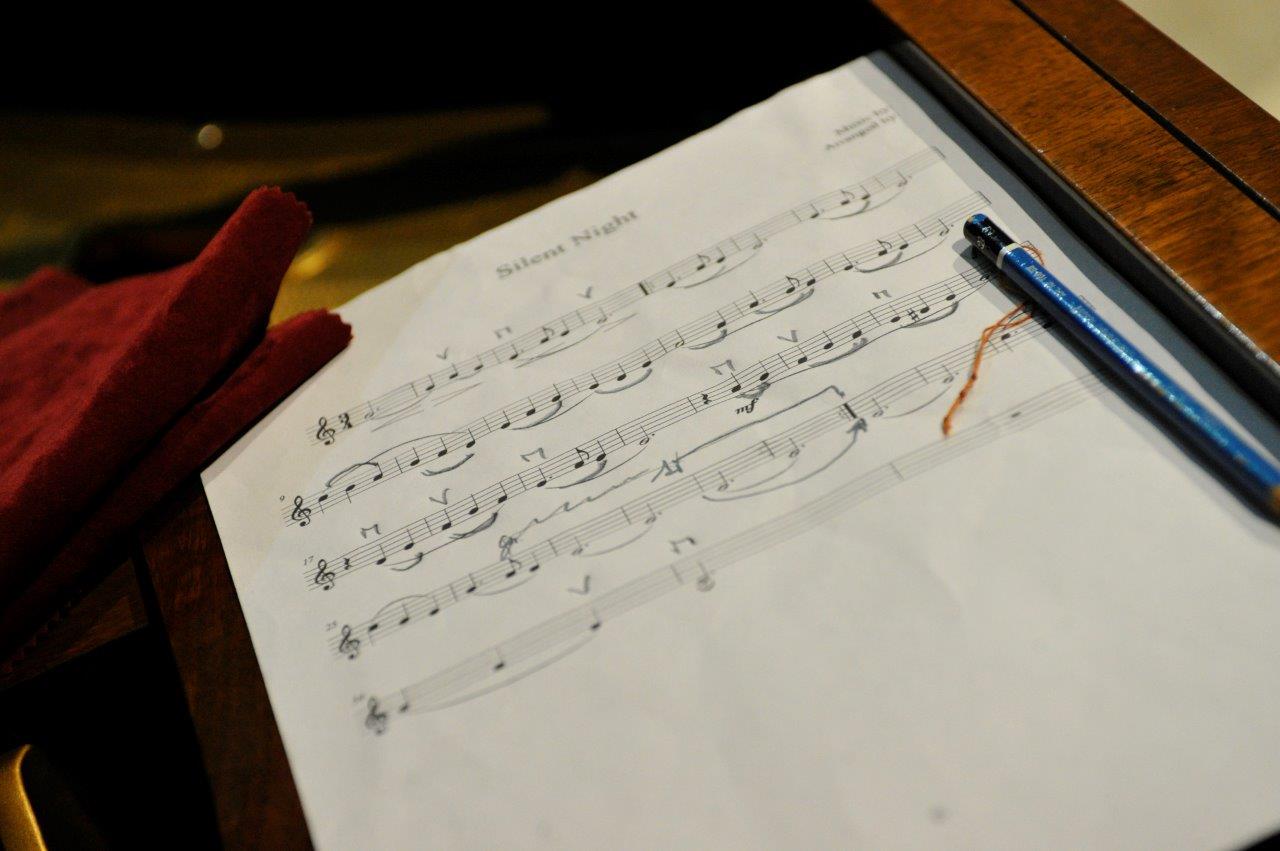 Silent Night
Music by
Arranged by
9
17
25